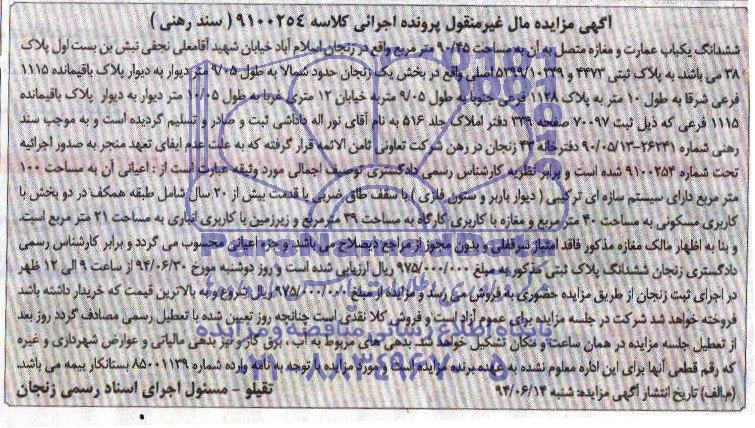 آگهی مزایده مال غیرمنقول پرونده اجرائی کلاسه ۹۱۰۰۲۵۴ ( سند رهنی )
ششدانگ یکباب عمارت و مغازه متصل به آن به مساحت ۹۰/۴۵ متر مربع واقع در زنجان اسلام آباد خیابان شهید آقامعلی نجفی نبش بن بست اول پلاک
۳۸ می باشد، به پلاک ثبتی ۴۴۷۳ و ۵۲۹۹/۱۰۲۴۹ اصلی واقع در بخش یک زنجان حدود شمالا به طول ۹/۰۵ متر دیوار به دیوار پلاک باقیمانده ۱۱۱۵
فرعی شرقا به طول ۱۰ متر به پلاک ۱۱۲۸ فرعی جنوبا به طول ۹/۰۵ متر به خیابان ۱۲ متری غربا به طول ۱۰/۰۵ متر دیوار به دیوار پلاک باقیمانده
۱۱۱۵ فرعی که ذیل ثبت ۷۰۰۹۷ صفحه ۳۳۹ دفتر املاک جلد ۵۱۶ به نام آقای نور اله داداشی ثبت و صادر و تسلیم گردیده است و به موجب سند
رهنی شماره ۲۶۲۴۱-۹۰/۰۵/۱۳ دفترخانه ۴۳ زنجان در رهن شرکت تعاونی ثامن الائمه قرار گرفته که به علت عدم ایفای تعهد منجر به صدور اجرائیه
تحت شماره ۹۱۰۰۲۵۴ شده است و برابر نظریه کارشناس رسمی دادگستری توصیف اجمالی مورد وثیقه عبارت است از : اعیانی آن به مساحت ۱۰۰
متر مربع دارای سیستم سازه ای ترکیبی ( دیوار باربر و ستون فلزی ) با سقف طاق ضربی با قدمت بیش از ۲۰ سال شامل طبقه همکف در دو بخش با
کاربری مسکونی به مساحت ۴۰ متر مربع و مغازه با کاربری کارگاه به مساحت ۳۹ متر مربع و زیرزمین با کاربری انباری به مساحت ۲۱ متر مربع است.
و بنا به اظهار مالک مغازه مذکور فاقد امتیاز سرقفلی و بدون مجوز از مراجع ذیصلاح می باشد، و جزء اعیانی محسوب می گردد و برابر کارشناس رسمی
دادگستری زنجان ششدانگ پلاک ثبتی مذکور به مبلغ ۹۷۵/۰۰۰/۰۰۰ ریال ارزیابی شده است و روز دوشنبه مورخ ۹۴/۰۶/۳۰ از ساعت ۹ الی ۱۲ ظهر
در اجرای ثبت زنجان از طریق مزایده حضوری به فروش می رسد و مزایده از مبلغ ۹۷۵/۰۰۰/۰۰۰ ریال شروع و به بالاترین قیمت که خریدار داشته باشد
فروخته خواهد شد شرکت در جلسه مزایده برای عموم آزاد است و فروش کلا نقدی است چنانچه روز تعیین شده با تعطیل رسمی مصادف گردد روز بعد
از تعطیل جلسه مزایده در همان ساعت و مکان تشکیل خواهد شد. بدهی های مربوط به آب ، برق گاز و نیز بدهی مالیاتی و عوارض شهرداری و غیره
که رقم قطعی آنها برای این اداره معلوم نشده به عهده برنده مزایده است و مورد مزایده با توجه به نامه وارده شماره ۸۵۰۰۱۱۳۹ بستانکار بیمه می باشد.
(م.الف) تاریخ انتشار آگهی مزایده: شنبه ۹۴/۰۶/۱۴
تقیلو - مسئول اجرای اسناد رسمی زنجان
ParsNamadData
پایگاه اطلاع رسانی مناقصه و مزایده
۰۲۱-۸۸۳۴۹۶۷۰-۵